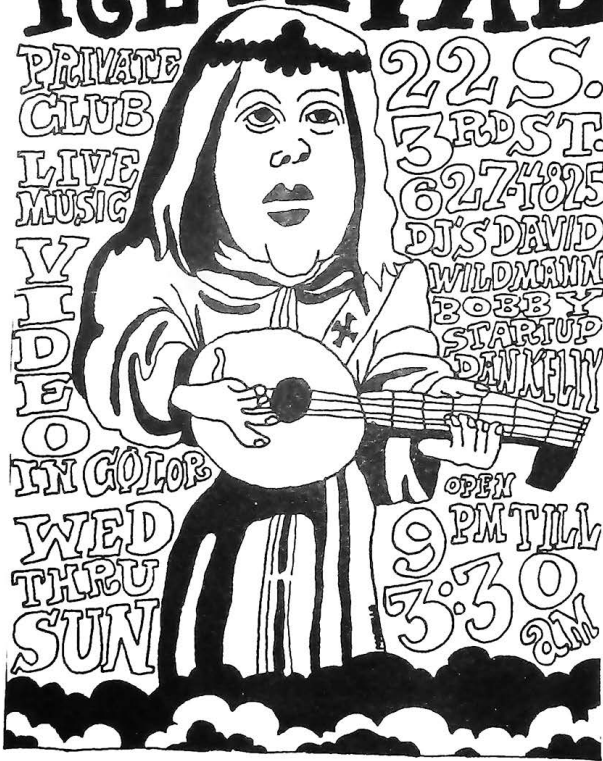 PRIVATE
CLUB
LIVE
MUSIC
VIDEO
IN COLOR
WED
THRU
SUN
22 S.
3RD ST.
627-4825
DJ'S DAVID
WILDMANN
BOBBY
STARTUP
DAN KELLY
OPEN
9 PM TILL
3:30
am